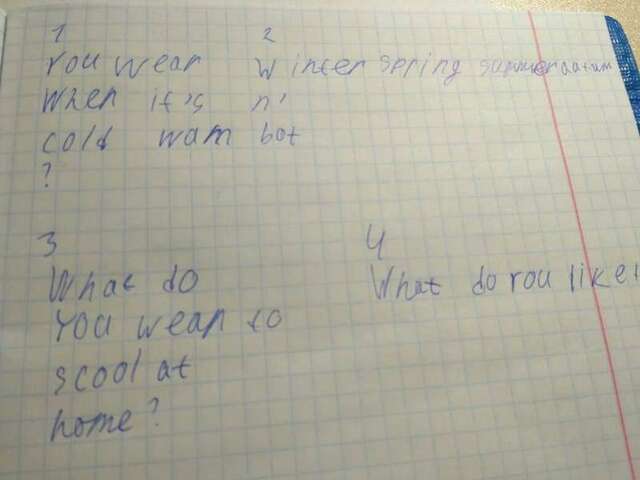 1
You wear
when it's
cold warm hot
?
2
Winter spring summer autum
n'
3
What do
you wear to
scool at
home?
4
What do you like!